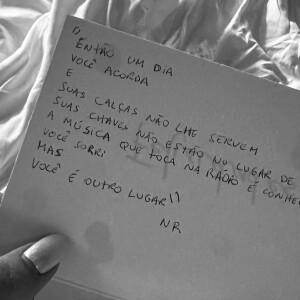 "
ENTÃO UM DIA
VOCÊ ACORDA
E
SUAS CALÇAS NÃO LHE SERVEM
SUAS CHAVES NÃO ESTÃO NO LUGAR DE
A MÚSICA QUE TOCA NA RÁDIO É
VOCÊ SORRI
MAS
VOCÊ É OUTRO LUGAR"
NR